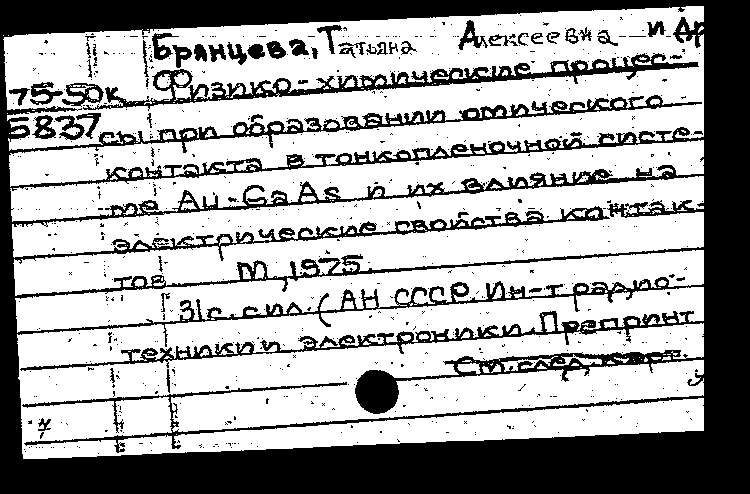 Брянцева, Татьяна Алексеевна и др
75-50к Физико-химические процес-
5837 сы при образовании омического
контакта в тонкопленочной систе-
ме Au-GaAs и их влияние на
электрические свойства контак-
тов. М., 1975.
31с. с ил. (АН СССР. Ин-т радио-
техники и электроники. Препринт
См. след. карт.